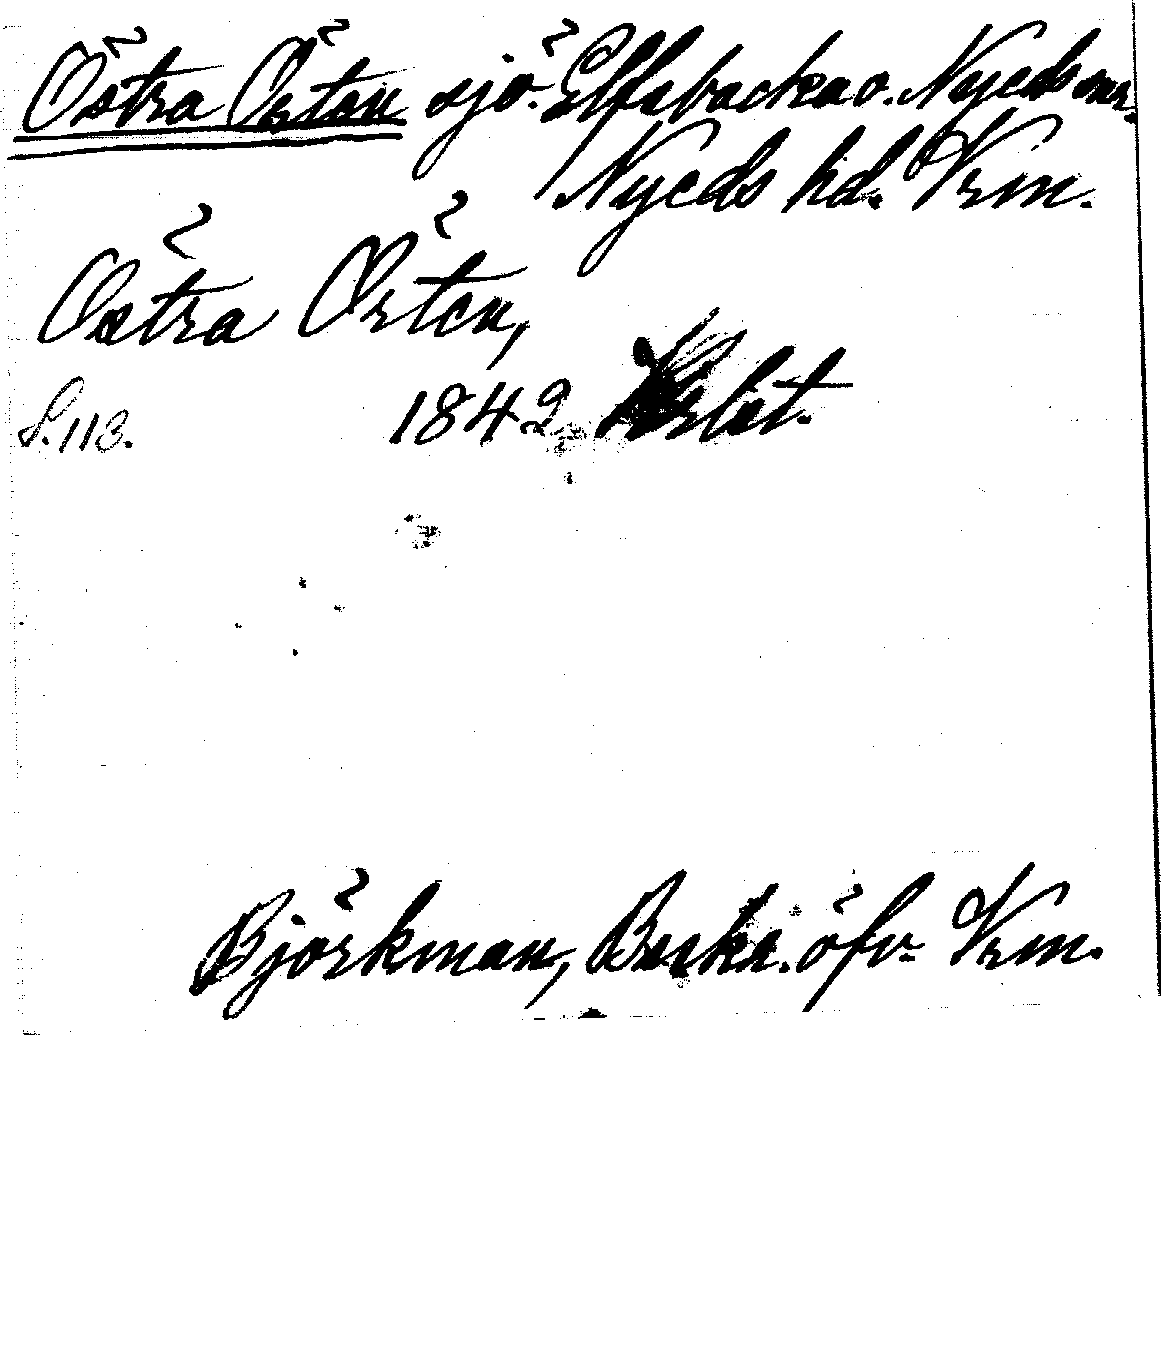 Östra Örten sjö. Elfsbacka o. Nyeds snr.
Nyeds hd. Vrm.
Östra Örten,
S. 113. 1842
Björkman, Beskr. öfv. Vrm.